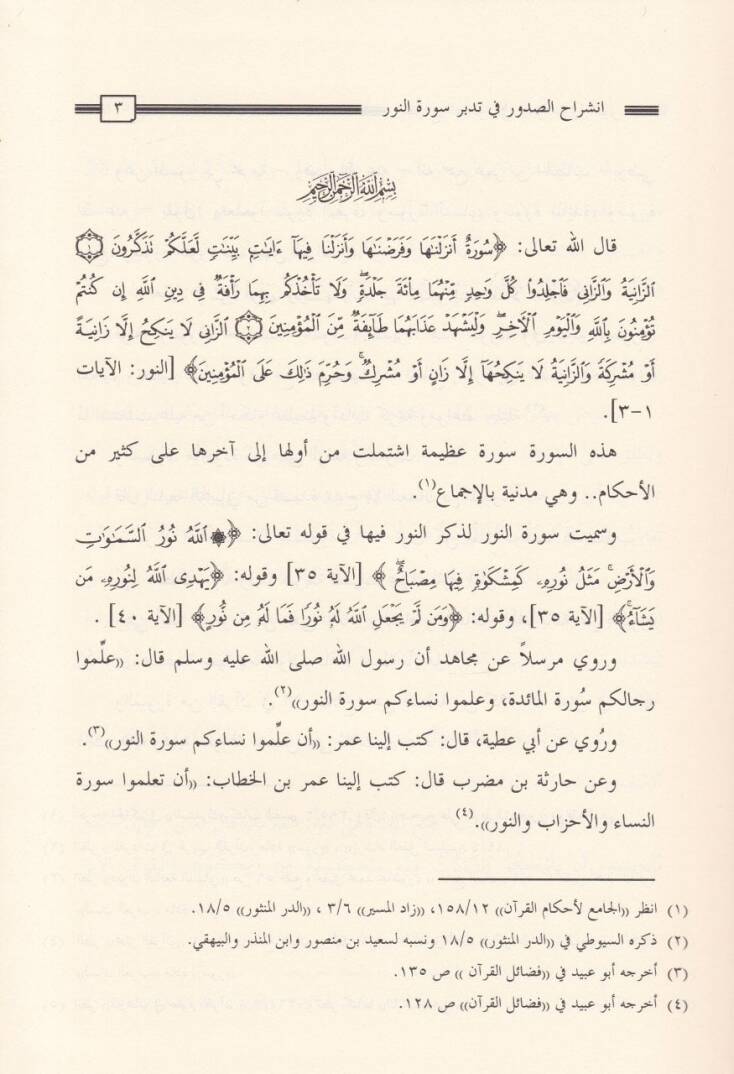 انشراح الصدور في تدبر سورة النور ٣
بِسْمِ ٱللَّهِ ٱلرَّحْمَٰنِ ٱلرَّحِيمِ
قال الله تعالى: ﴿سُورَةٌ أَنزَلْنَٰهَا وَفَرَضْنَٰهَا وَأَنزَلْنَا فِيهَآ ءَايَٰتٍۭ بَيِّنَٰتٍ لَّعَلَّكُمْ تَذَكَّرُونَ ١
ٱلزَّانِيَةُ وَٱلزَّانِى فَٱجْلِدُوا۟ كُلَّ وَٰحِدٍ مِّنْهُمَا مِا۟ئَةَ جَلْدَةٍ ۖ وَلَا تَأْخُذْكُم بِهِمَا رَأْفَةٌ فِى دِينِ ٱللَّهِ إِن كُنتُمْ
تُؤْمِنُونَ بِٱللَّهِ وَٱلْيَوْمِ ٱلْءَاخِرِ ۖ وَلْيَشْهَدْ عَذَابَهُمَا طَآئِفَةٌ مِّنَ ٱلْمُؤْمِنِينَ ٢ ٱلزَّانِى لَا يَنكِحُ إِلَّا زَانِيَةً
أَوْ مُشْرِكَةً وَٱلزَّانِيَةُ لَا يَنكِحُهَآ إِلَّا زَانٍ أَوْ مُشْرِكٌ ۚ وَحُرِّمَ ذَٰلِكَ عَلَى ٱلْمُؤْمِنِينَ﴾ [النور: الآيات
١-٣].
هذه السورة سورة عظيمة اشتملت من أولها إلى آخرها على كثير من
الأحكام.. وهي مدنية بالإجماع(١).
وسميت سورة النور لذكر النور فيها في قوله تعالى: ﴿۞ ٱللَّهُ نُورُ ٱلسَّمَٰوَٰتِ
وَٱلْأَرْضِ ۚ مَثَلُ نُورِهِۦ كَمِشْكَوٰةٍ فِيهَا مِصْبَاحٌ ۖ﴾ [الآية ٣٥] وقوله: ﴿يَهْدِى ٱللَّهُ لِنُورِهِۦ مَن
يَشَآءُ ۚ﴾ [الآية ٣٥]، وقوله: ﴿وَمَن لَّمْ يَجْعَلِ ٱللَّهُ لَهُۥ نُورًا فَمَا لَهُۥ مِن نُّورٍ﴾ [الآية ٤٠] .
وروي مرسلاً عن مجاهد أن رسول الله صلى الله عليه وسلم قال: ((علِّموا
رجالكم سُورة المائدة، وعلموا نساءكم سورة النور))(٢).
ورُوي عن أبي عطية، قال: كتب إلينا عمر: ((أن علِّموا نساءكم سورة النور))(٣).
وعن حارثة بن مضرب قال: كتب إلينا عمر بن الخطاب: ((أن تعلموا سورة
النساء والأحزاب والنور)).(٤)
(١) انظر ((الجامع لأحكام القرآن)) ١٥٨/١٢، ((زاد المسير)) ٣/٦ ، ((الدر المنثور)) ١٨/٥.
(٢) ذكره السيوطي في ((الدر المنثور)) ١٨/٥ ونسبه لسعيد بن منصور وابن المنذر والبيهقي.
(٣) أخرجه أبو عبيد في ((فضائل القرآن )) ص ١٣٥.
(٤) أخرجه أبو عبيد في ((فضائل القرآن)) ص ١٢٨.